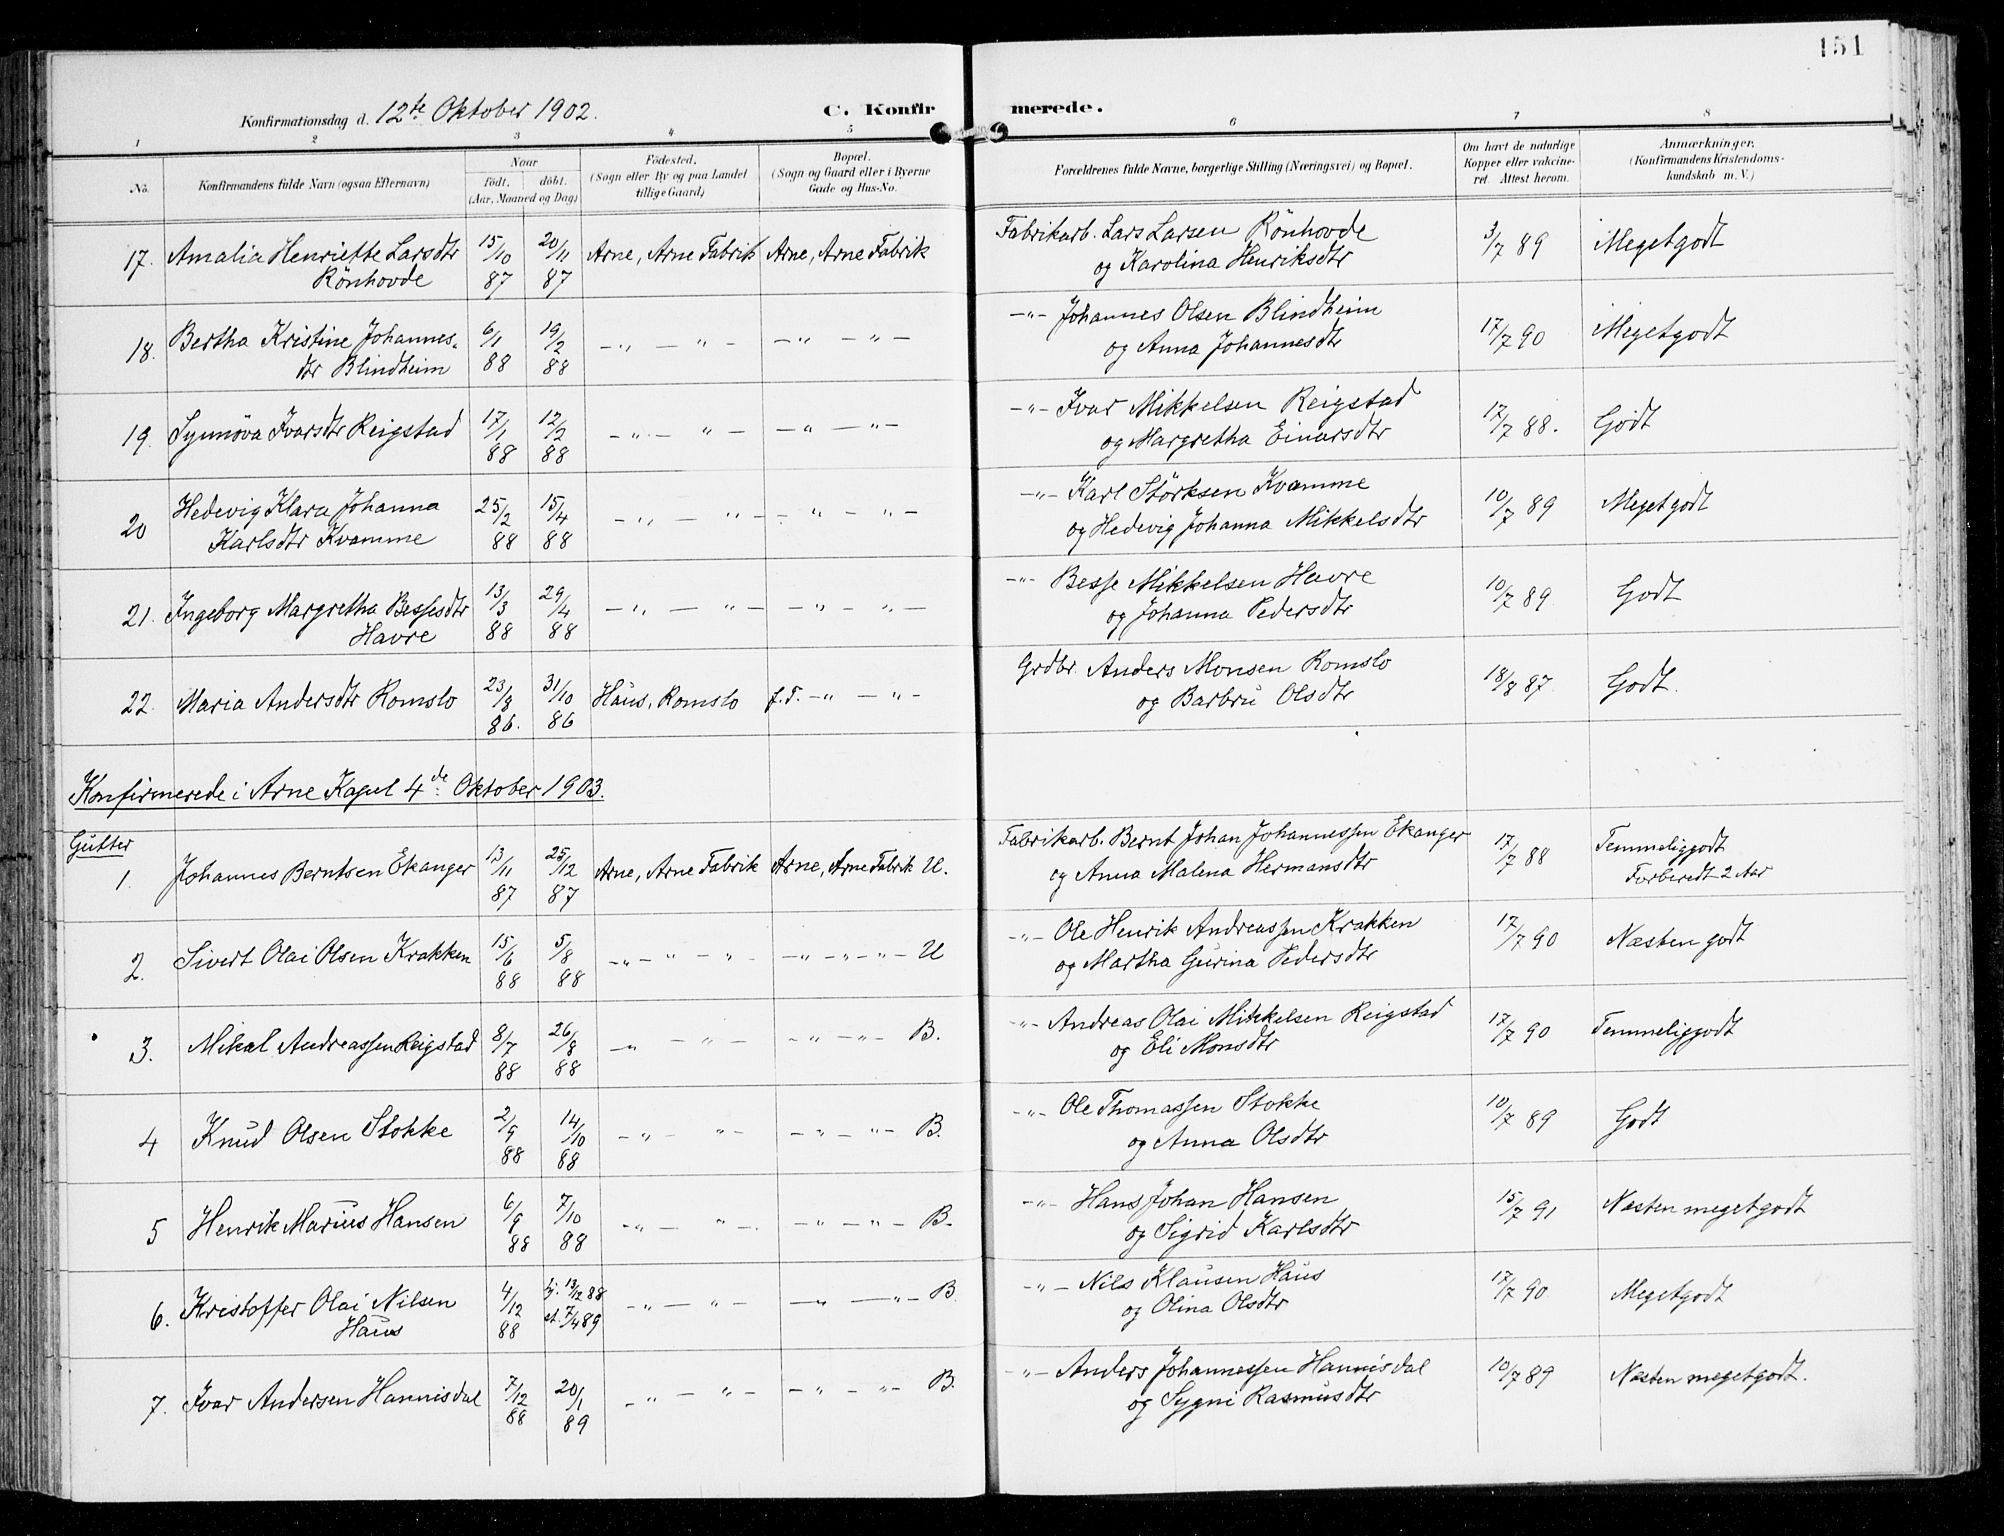 151
Konfirmationsdag d. 12te Oktober 1902.
C. Konfir merede.
1 2 3 4 5 6 7 8
No.
Konfirmandens fulde Navn (ogsaa Efternavn)
Naar
födt. döbt.
(Aar, Maaned og Dag)
Födested.
(Sogn eller By og paa Landet
tillige Gaard)
Bopæl.
(Sogn og Gaard eller i Byerne
Gade og Hus-No.
Forældrenes fulde Navne, borgerlige Stilling (Næringsvei) og Bopæl.
Om havt de naturlige
Kopper eller vakcine-
ret. Attest herom.
Anmærkninger.
(Konfirmandens Kristendoms-
kundskab m. V.)
17. Amalia Henriette Larsdtr 15/10 20/11 Arne, Arne Fabrik Arne, Arne Fabrik Fabrikarb. Lars Larsen Rönhovde 3/7 89 Megetgodt
Rönhovde 87 87 og Karolina Henriksdtr
18. Bertha Kristine Johannes- 6/1 19/2 —"— " — —"— "— —"— Johannes Olsen Blindheim 17/7 90 Megetgodt
dtr Blindheim 88 88 og Anna Johannesdtr
19. Synnöva Ivarsdtr Reigstad 17/1 12/2 —"— " — —"— "— —"— Ivar Mikkelsen Reigstad 17/7 88. Godt
88 88 og Margretha Einarsdtr
20 Hedevig Klara Johanna 25/2 15/4 —"— " — — " — "— —"— Karl Störksen Kvamme 10/7 89 Megetgodt
Karlsdtr Kvamme 88 88 og Hedevig Johanna Mikkelsdtr
21. Ingeborg Margretha Bessesdtr 13/3 29/4 —"— " — — " — "— —"— Besse Mikkelsen Havre 10/7 89 Godt
Havre 88 88 og Johanna Pedersdtr
22. Maria Andersdtr Romslo 23/8 31/10 Haus, Romslo f.T. —"— "— Grdbr. Anders Monsen Romslo 18/8 87. Godt.
86. 86 og Barbru Olsdtr
Konfirmerede i Arne Kapel 4de Oktober 1903.
Gutter
1. Johannes Berntsen Ekanger 13/11 25/12 Arne, Arne Fabrik Arne, Arne Fabrik U. Fabrikarb. Bernt Johan Johannessen Ekanger 17/7 88 Temmeliggodt
87 87 og Anna Malena Hermansdtr Forberedt 2 Aar
2. Sivert Olai Olsen Krakken 15/6 5/8 —"— " — " —"— "— "— U "— Ole Henrik Andreassen Krakken 17/7 90 Næsten godt
88 88 og Martha Gurina Pedersdtr
3. Mikal Andreassen Reigstad 8/7 26/8 —" — " — —"— "— B. "— Andreas Olai Mikkelsen Reigstad 17/7 90 Temmeliggodt
88 88 og Eli Monsdtr
4 Knud Olsen Stokke 2/9 14/10 —"— " — —"— "— B. —"— Ole Thomassen Stokke 10/7 89 Godt
88 88 og Anna Olsdtr
5 Henrik Marius Hansen 6/9 7/10 —"— " — —"— "— B. —"— Hans Johan Hansen 15/7 91 Næsten megetgodt
88 88 og Sigrid Karlsdtr
6. Kristoffer Olai Nilsen 4/12 hj. 13/12 88 —"— " — —" —"— B. "— Nils Klausen Haus 17/7 90 Megetgodt
Haus 88 st. 7/4 89 og Olina Olsdtr
7. Ivar Andersen Hannisdal 7/12 20/1 —" — "— —"— "— B. "— Anders Johannessen Hannisdal 10/7 89 Næsten megetgodt.
88 89 og Sygni Rasmusdtr